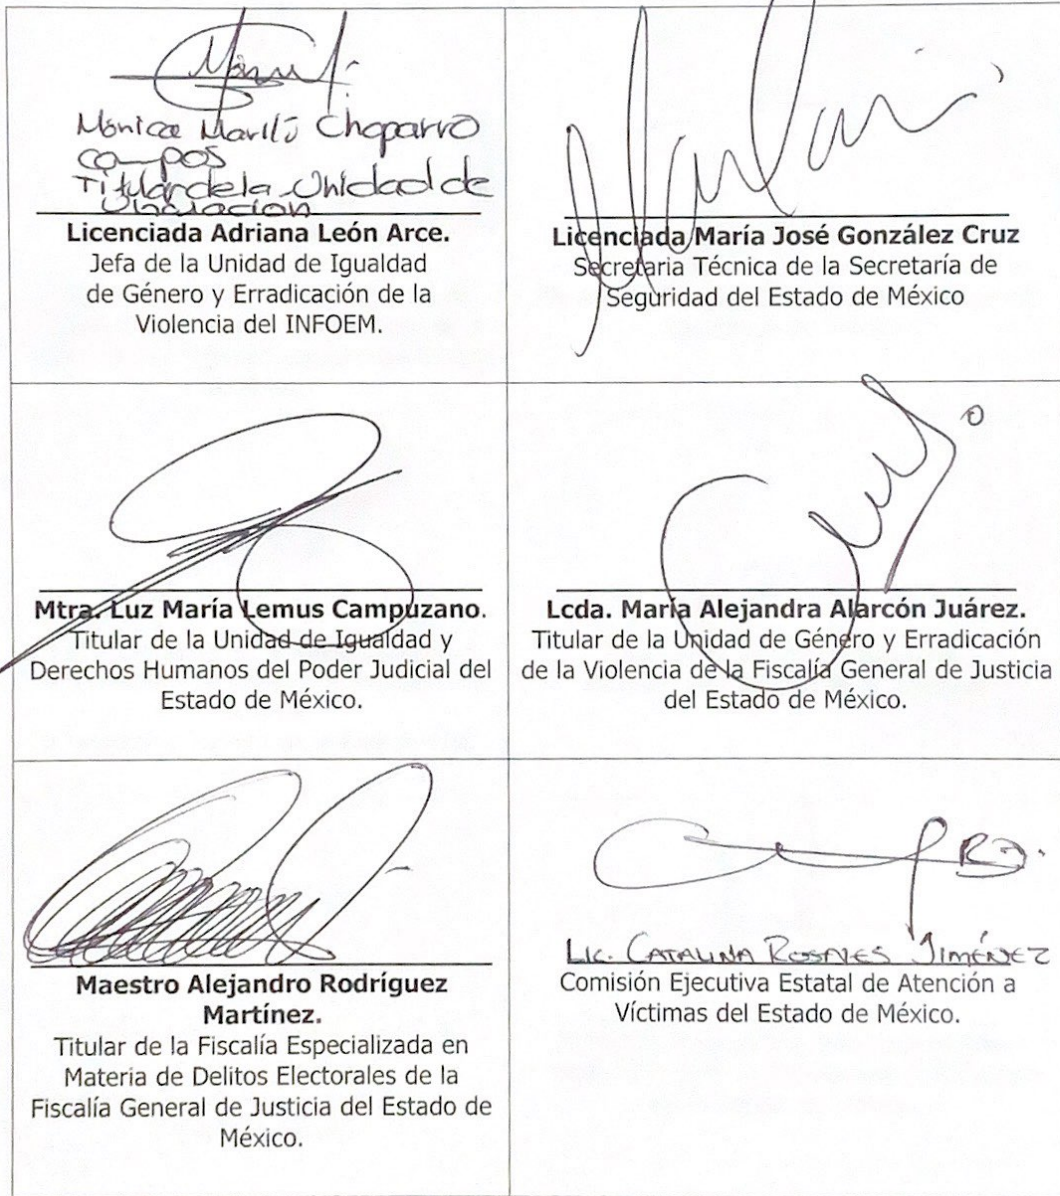 Mónica Marilú Chaparro
Campos
Titular de la Unidad de
Vinculación
Licenciada Adriana León Arce.
Jefa de la Unidad de Igualdad
de Género y Erradicación de la
Violencia del INFOEM.
Licenciada María José González Cruz
Secretaria Técnica de la Secretaría de
Seguridad del Estado de México
Mtra. Luz María Lemus Campuzano.
Titular de la Unidad de Igualdad y
Derechos Humanos del Poder Judicial del
Estado de México.
Lcda. María Alejandra Alarcón Juárez.
Titular de la Unidad de Género y Erradicación
de la Violencia de la Fiscalía General de Justicia
del Estado de México.
Maestro Alejandro Rodríguez
Martínez.
Titular de la Fiscalía Especializada en
Materia de Delitos Electorales de la
Fiscalía General de Justicia del Estado de
México.
LIC. CATALINA ROSALES JIMÉNEZ
Comisión Ejecutiva Estatal de Atención a
Víctimas del Estado de México.